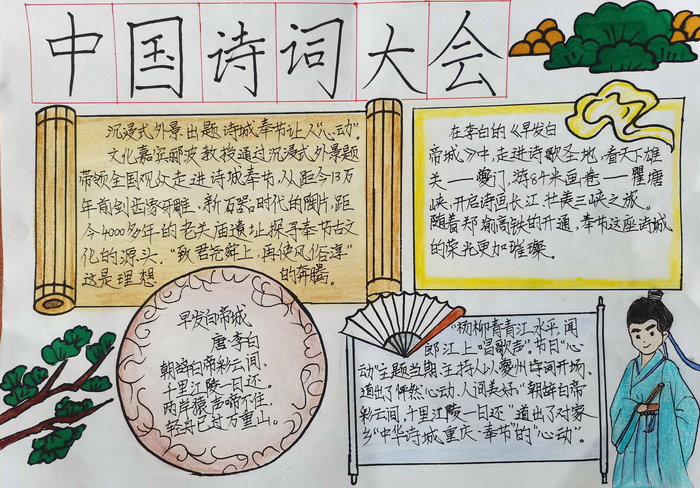 中国诗词大会
沉浸式外景出题诗城奉节让人“心动”。
文化嘉宾郦波教授通过沉浸式外景题
带领全国观众走进诗城奉节,从距今13万
年前剑齿象牙雕、新石器时代的陶片,距
今4000多年的老关庙遗址探寻奉节古文
化的源头。“致君尧舜上,再使风俗淳”
这是理想的奔腾。
在李白的《早发白
帝城》中,走进诗歌圣地,看天下雄
关——夔门,游84米画卷——瞿塘
峡,开启诗画长江,壮美三峡之旅。
随着郑渝高铁的开通,奉节这座诗城
的荣光更加璀璨。
早发白帝城
唐:李白
朝辞白帝彩云间,
千里江陵一日还。
两岸猿声啼不住,
轻舟已过万重山。
“杨柳青青江水平,闻
郎江上“唱歌声”。节日“心
动”主题当期,主持人以夔州诗词开场,
道出了怦然心动,人词美好。“朝辞白帝
彩云间,千里江陵一日还”道出了对家
乡“中华诗城重庆·奉节”的“心动”。